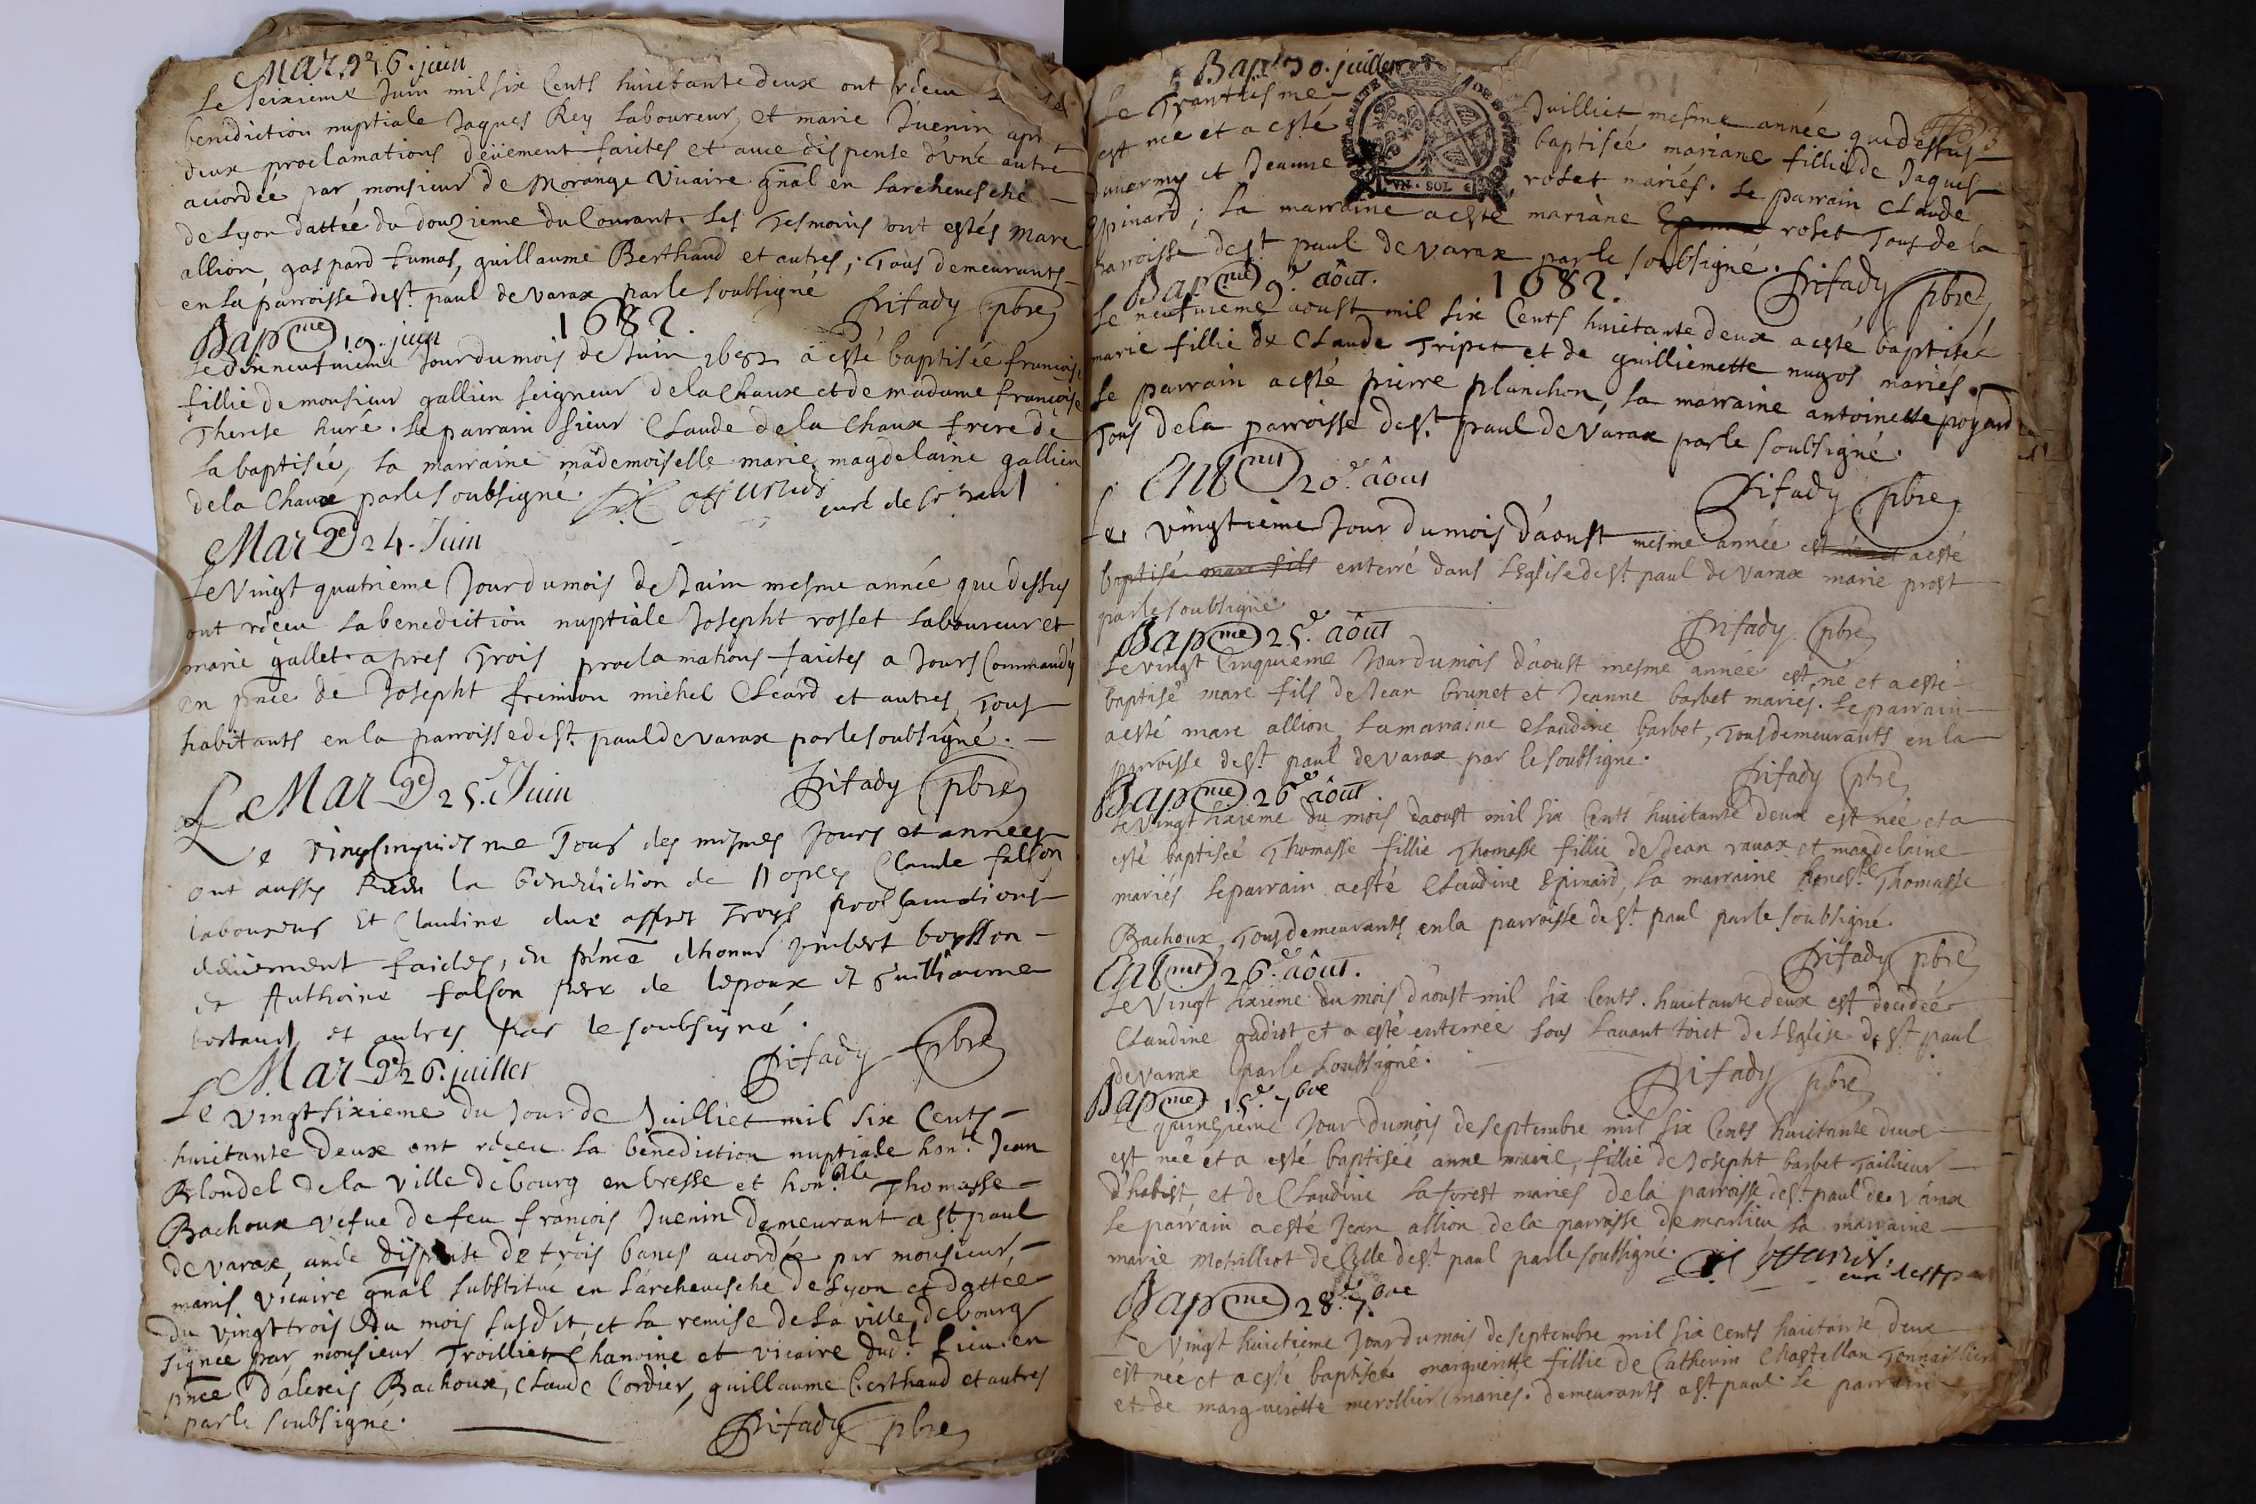 Mar ge 16. juin
Le seixieme Juin mil six Cents huictante deux ont réceu
benediction nuptiale Jaques Rey Laboureur, et marie Juenin apr
deux proclamations deüement faictes et auec dispense d'vne autre
accordée par monsieur de Morange Vicaire gñal en Larcheuesché
de Lyon dattée du douzieme du Courant. Les Tesmoins ont estés Marc
allion, gaspard fumas, guillaume Berthaud et autres, Tous demeurants
en la parroisse de st. paul de varax par le soubsigné
Trifady pbre
Bapme 19. juin 1682.
Le dixneufuieme Jour du mois de Juin 1682 a esté baptisée françoise
fillie de monsieur gallien seigneur de la Chaux et de madame françoise
Therese huré. Le parrain sieur Claude de la Chaux frere de
la baptisée, la marraine mademoiselle marie magdelaine gallien
de la Chaux par le soubsigné.
curé de St paul
Mar ge 24. Juin
Le Vingt quatrieme Jour du mois de Juin mesme année que dessus
ont réçeu la benediction nuptiale Josepht rosset Laboureur et
marie gallet apres Trois proclamations faictes a Jours Commandés
en pñce de Josepht frémion michel Cléard et autres, Tous
habitants en la parroisse de st. paul de varax par le soubsigné.
Trifady pbre
Mar ge 25e. Juin
Le vingt Cinquiesme Jour des mesmes Jours et annees
ont aussy Receu la benediction de Nopces Claude falson
laboureur Et Claudine duc appres Troys proclamations
deüement faictes, en pñce dhonné ymbert boysson
et Anthoine falson pere de lepoux et Guilliaume
bertaud et autres par le soubsigné.
Trifady pbre
Mar ge 26. juillet
Le vingtsixieme du Jour de Juilliet mil six Cents
huictante deux ont réceu la benediction nuptiale hont. Jean
Blondel de la ville de bourg en bresse et honble Thomasse
Bachoux vefue de feu françois Juenin demeurant a st. paul
de varax auec dispense de trois bancs accordée par monsieur
manis vicaire gñal substitué en Larcheuesché de Lyon et dattée
du vingttrois du mois susdit, et la remise de la ville de bourg
signée par monsieur Trollliet Chanoine et vicaire dudt. Lieu. en
pñce d'alexis Bachoux, Claude Cordier, guillaume Berthaud et autres
par le soubsigné.
Trifady pbre
Bap 30. juillet
Le Trantiesme Juilliet mesme année que dessus
est née et a esté baptisée mariane fillie de Jaques
et Jeanne roset mariés. Le parrain Claude
Epinard; La marraine a esté mariane roset Tous de la
parroisse de st. paul de varax par le soubsigné.
VN SOL
Trifady pbre
Bapme 9e. aôut. 1682.
Le neufuieme aoust mil six Cents huictante deux a esté baptisée
marie fillie de Claude Tripet et de guilliemette nugos mariés.
Le parrain a esté pierre planchon, la marraine antoinette poyard
Tous de la parroisse de st. paul de Varax par le soubsigné.
Trifady pbre
Ent mt 20e. aôut
Le vingtieme Jour du mois d'aoust mesme année est né et a esté
baptisé marc fils enterré dans L'Eglise de st. paul de Varax marie prost
par le soubsigné
Trifady pbre
Bapme 25e. aôut
Le vingt Cinquieme Jour du mois d'aoust mesme année est né et a esté
baptisé marc fils de Jean brunet et Jeanne barbet mariés. Le parrain
a esté marc allion, La marraine Claudine barbet, Tous demeurants en la
parroisse de st. paul de varax par le soubsigné.
Trifady pbre
Bapme 26e aôut
Le Vingt sixieme du mois daoust mil six Cents huictante deux est née et a
esté baptisée Thomasse fillie Thomasse fillie de Jean ravax et magdelaine
mariés Le parrain a esté Claudine Epinard, La marraine honeste Thomasse
Bachoux, Tous demeurants en la parroisse de st. paul par le soubsigné.
Trifady pbre
Ent mt 26e. aôut.
Le Vingt sixieme du mois d'aoust mil six Cents. huictante deux est decédée
Claudine gadiot et a esté enterrée sous Lauant toict de L'Eglise de st. paul
de varax par le soubsigné.
Trifady pbre
Bapme 15e. 7bre
Le quinzieme Jour du mois de septembre mil six Cents huictante deux
est née et a esté baptisée anne marie, fillie de Josepht barbet Taillieur
d'habist et de Claudine Laforest mariés de la parroisse de st. paul de Varax
Le parrain a esté Jean allion de la parroisse de marlieu La marraine
marie Motrilliot de Celle de st. paul par le soubsigné.
curé de st paul
Bapme 28e. 7bre
Le Vingt huictieme Jour du mois de septembre mil six cents huictante deux
est née et a esté baptisée margueritte fillie de Catherin Chastellan Tonnaillier
et de margueritte merollier mariés. demeurants a st. paul. Le parrain